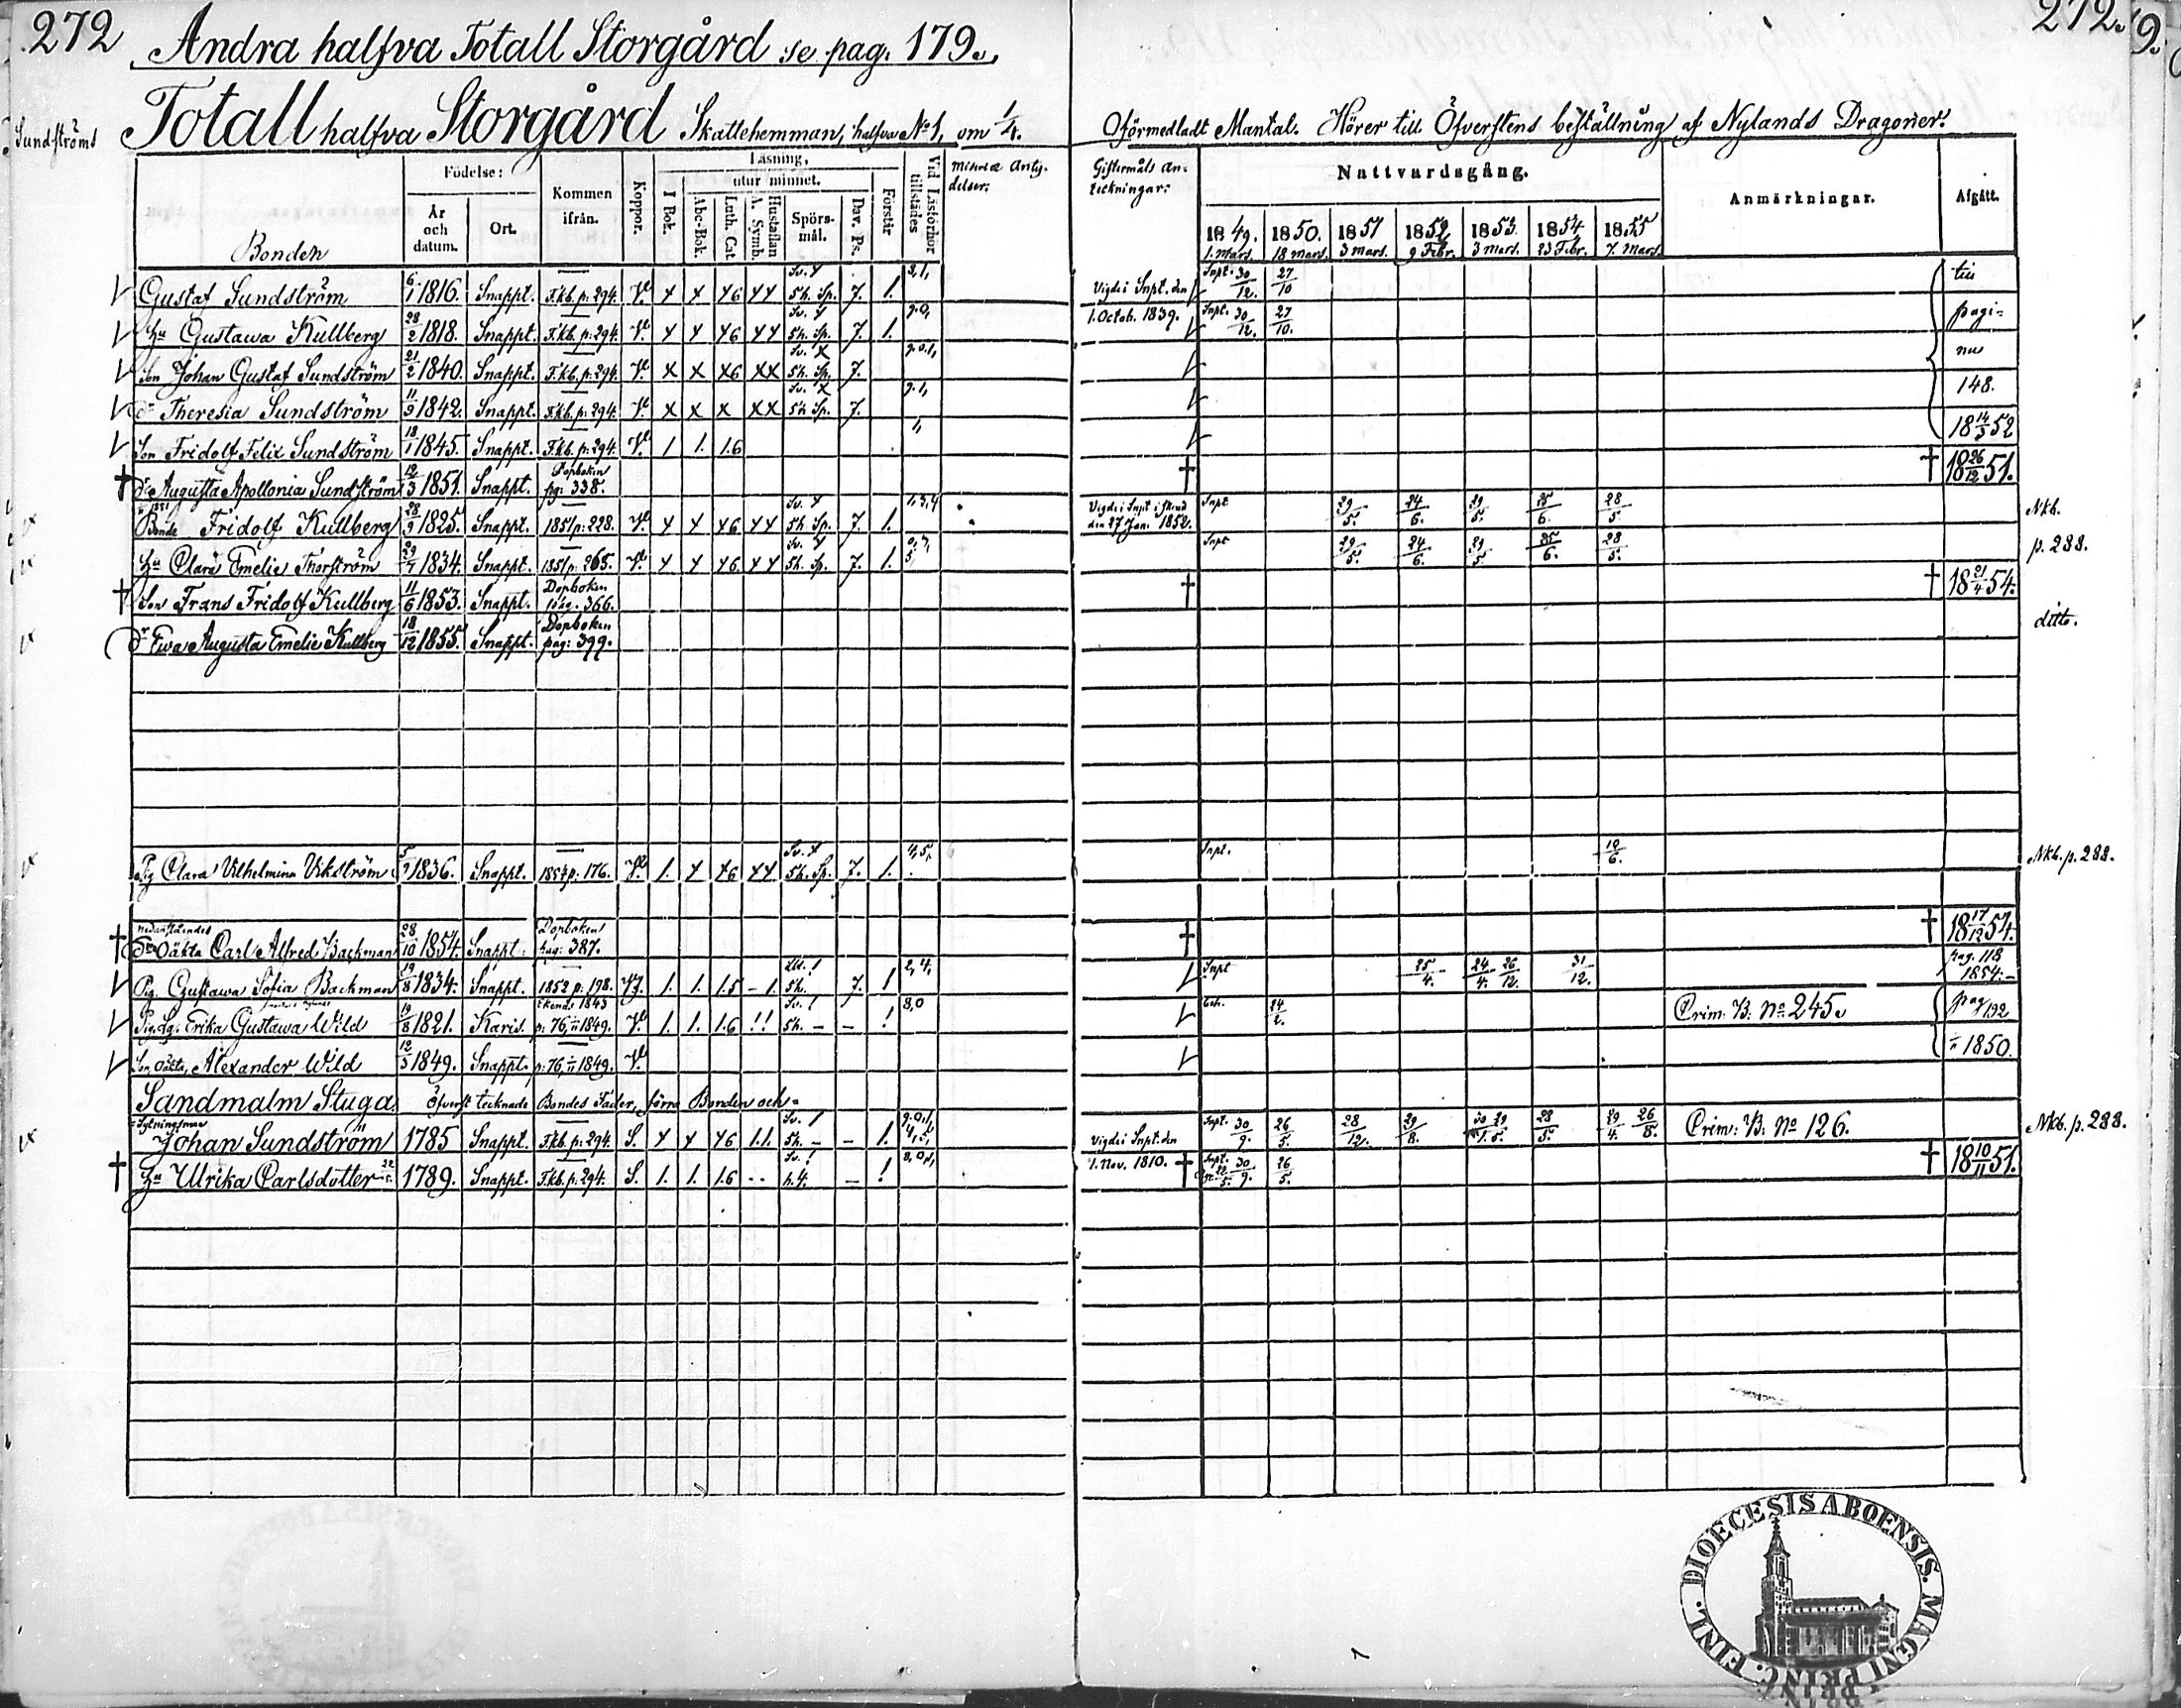 272 Andra halfva Totall Storgård se pag. 179.
272.
9.
Sundströms
Totall halfva Storgård Skattehemman, halfva No 1, om 1/4. Oförmedladt Mantal. Hörer till Öfverstens beställning af Nylands Dragoner.
Födelse:
År och datum.
Ort.
Kommen ifrån.
Koppor.
Läsning,
utur minnet.
I Bok.
Abc-Bok.
Luth. Cat
A. Symb. Hustaflan
Spörsmål.
Dav. Ps.
Förstår
Vid Läsförhör tillstädes
Giftermåls Anteckningar:
Nattvardsgång.
1849. 1. Mars.
1850. 18 mars.
1851 3 mars.
1852 9 Febr.
1853. 3 mars.
1854 23 Febr.
1855 7. Mars.
Anmärkningar.
Afgått.
Bonden
Gustaf Sundström 6/1 1816. Snappt. F.kb. p: 294. V. x x x6 xx Sv. x 5h. Sp. 7. 1. Vigde i Snpt. den Snpt. 30/12. 27/10 till
Hu Gustawa Kullberg 28/2 1818. Snappt. F.kb. p: 294. V. x x x6 xx Sv. x 5h. Sp. 7. 1. 1. Octob. 1839. Snpt. 30/12. 27/10. pagi-
Son Johan Gustaf Sundström 21/2 1840. Snappt. F.kb. p: 294. V. x x x6 xx Sv. x 5h. Sp. 7. na
dr Theresia Sundström 11/9 1842. Snappt. F.kb. p: 294. V. x x x xx Sv. x 5h Sp. 7. 148.
Son Fridolf Felix Sundström 18/1 1845. Snappt. F.kb. p: 294. V. 1 1. 1.6 18 14/3 52
† dr Augusta Apollonia Sundström 12/3 1851. Snappt. Dopboken pag: 338. † † 18 26/12 51.
Bonde Fridolf Kullberg 28/9 1825. Snappt. 1851 p: 228. V. x x x6 xx Sv. x 5h Sp. 7. 1. den 27 Jan. 1852. Snpt 29/5. 24/6. 29/5. 25/6. 28/5. Nkb.
Hu Clara Emelie Thorström 29/7 1834. Snappt. 1851 p: 265. V. x x x6 xx Sv. x 5h. Sp. 7. 1. Snpt 29/5. 24/6. 29/5. 25/6. 28/5. p. 288.
† Son Frans Fridolf Kullberg 11/6 1853. Snappt. Dopboken pag. 366. † † 18 21/4 54.
dr Ewa Augusta Emelie Kullberg 18/12 1855. Snappt. Dopboken pag: 399. ditto.
Pig Clara Vilhelmina Vikström 5/9 1836. Snappt. p: 176. V. 1. x x6 xx Sv. x 5h. Sp. 7. 1. Snpt. 10/6. Nkb. p. 288.
† nedanstående Oäkta Carl Alfred Backman 28/10 1854. Snappt. Dopboken pag: 387. † † 18 17/12 54.
Pig. Gustawa Sofia Backman 19/8 1834. Snappt. 1852 p. 198. 1. 1. 1.5 - 1. 5h. 7. 1 2,4, Snpt 25/4. 24/4. 26/12. 31/12. pag. 118 1854.
Pig. Erika Gustawa Wild 19/8 1821. Karis. Ekenäs 1843 p: 76, 1849. V. 1. 1. 1.6 !! 5h. - - ! 8,0 24/2. Crim. B: No 245. pag 192
Son, oäkta, Alexander Wild 12/3 1849. Snappt. p: 76, 1849. V. 1850.
Sandmalm Stuga. Öfverst tecknade Bondes Fader, förra Bonden och
Sytningsman Johan Sundström 1785 Snappt. F.kb. p: 294. S. x x x6 1.1. 5h. - - 1. Vigde i Snpt: den Snpt. 30/9. 26/5. 28/12. 29/8. 29/5. 28/5. 29/4. 26/8. Crim: B: No 126. Nkb. p. 288.
† Hu Ulrika Carlsdotter 1789. Snappt. F.kb. p: 294. S. 1. 1. 1.6 .. Sv. ! h. 4. - ! 1. Nov. 1810. † Snpt. 30/9. 26/5. † 18 10/11 51.
DIOECESIS ABOENSIS. MAGNI PRINC. FINL.